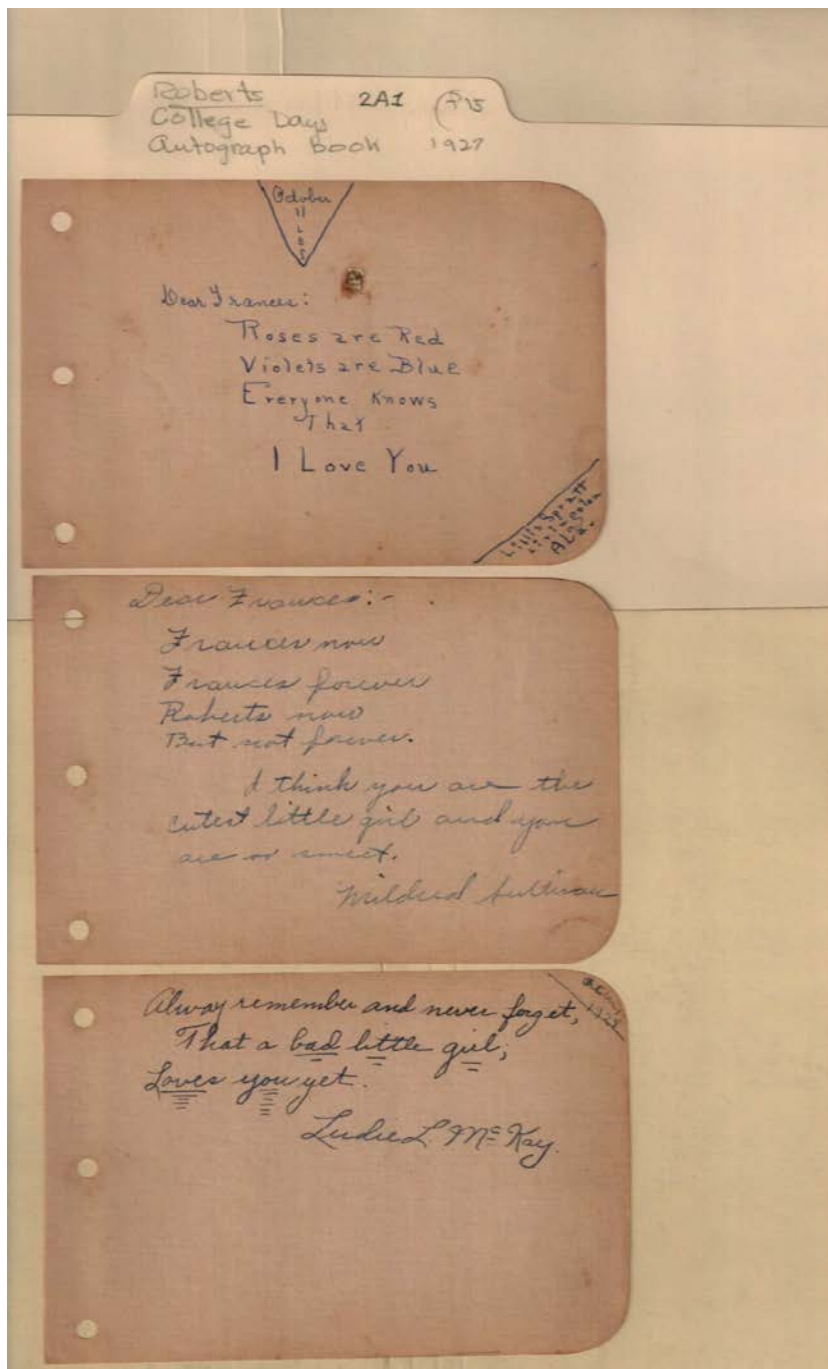 Roberts 2A1
College Days
Autograph Book 1927
October
11
Dear Frances:
Roses are Red
Violets are Blue
Everyone Knows
That
I Love You
Spratt
Ala.
Dear Frances:-
Frances now
Frances forever
Roberts now
But not forever.
I think you are the
cutest little girl and you
are so sweet.
Mildred Sullivan
Alway remember and never forget,
That a bad little girl,
Loves you yet.
Ludie L. McKay.